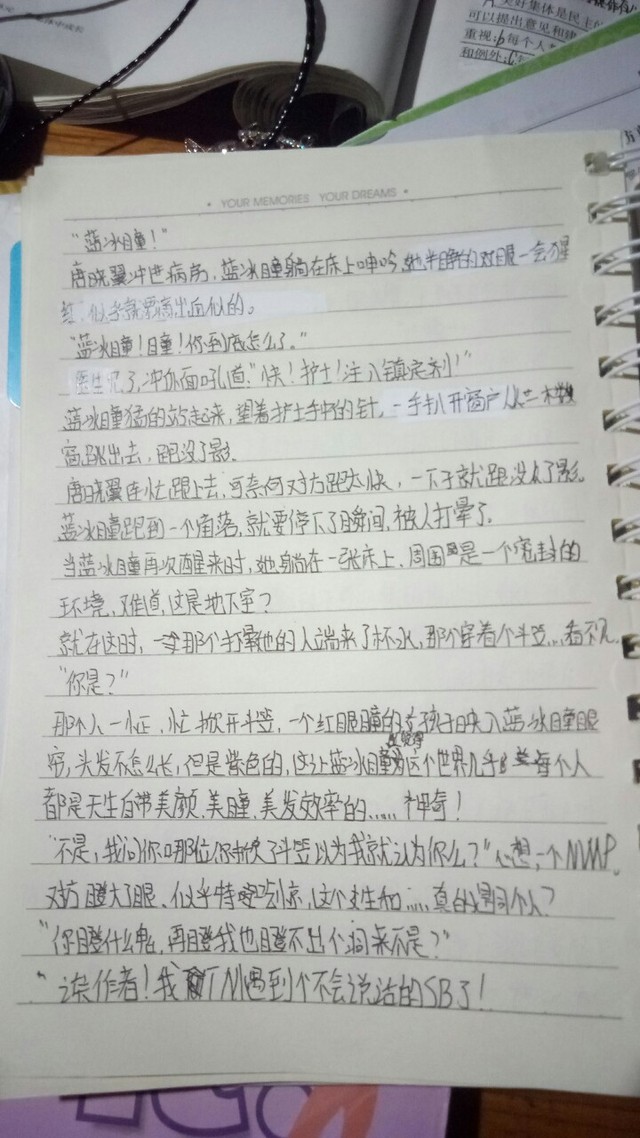 美好集体是民主的
可以提出意见和建
重视;b每个人
和例外;
• YOUR MEMORIES YOUR DREAMS •
“蓝冰瞳!”
唐晓翼冲进病房,蓝冰瞳躺在床上呻吟,她半睁的双眼一会猩
红,似乎就要滴出血似的。
“蓝冰瞳!瞳!你到底怎么了。”
医生见了,冲外面吼道:“快!护士!注入镇定剂!”
蓝冰瞳猛的站起来,望着护士手中的针,一手扒开窗户从二楼
窗跳出去,跑没了影.
唐晓翼连忙跟上去,可奈何对方跑太快,一下子就跑没了影.
蓝冰瞳跑到一个角落,就要停下了瞬间,被人打晕了。
当蓝冰瞳再次醒来时,她躺在一张床上,周围是一个密封的
环境,难道,这是地下室?
就在这时,那个打晕她的人端来了杯水,那个穿着个斗笠...看不见.
“你是?”
那个人一怔,忙掀开斗笠,一个红眼瞳的女孩子映入蓝冰瞳眼
帘,头发不怎么长,但是紫色的,这让蓝冰瞳觉得这个世界几乎每个人
都是天生自带美颜、美瞳、美发效率的...... 神奇!
“不是,我问你哪位你掀了斗笠以为我就认为你么?”心想,一个NMP。
对方瞪大了眼、似乎特吃惊,这个女生和......真的是同个人?
“你瞪什么鬼,再瞪我也瞪不出个洞来不是?”
“读作者!我TM遇到个不会说话的SB了!